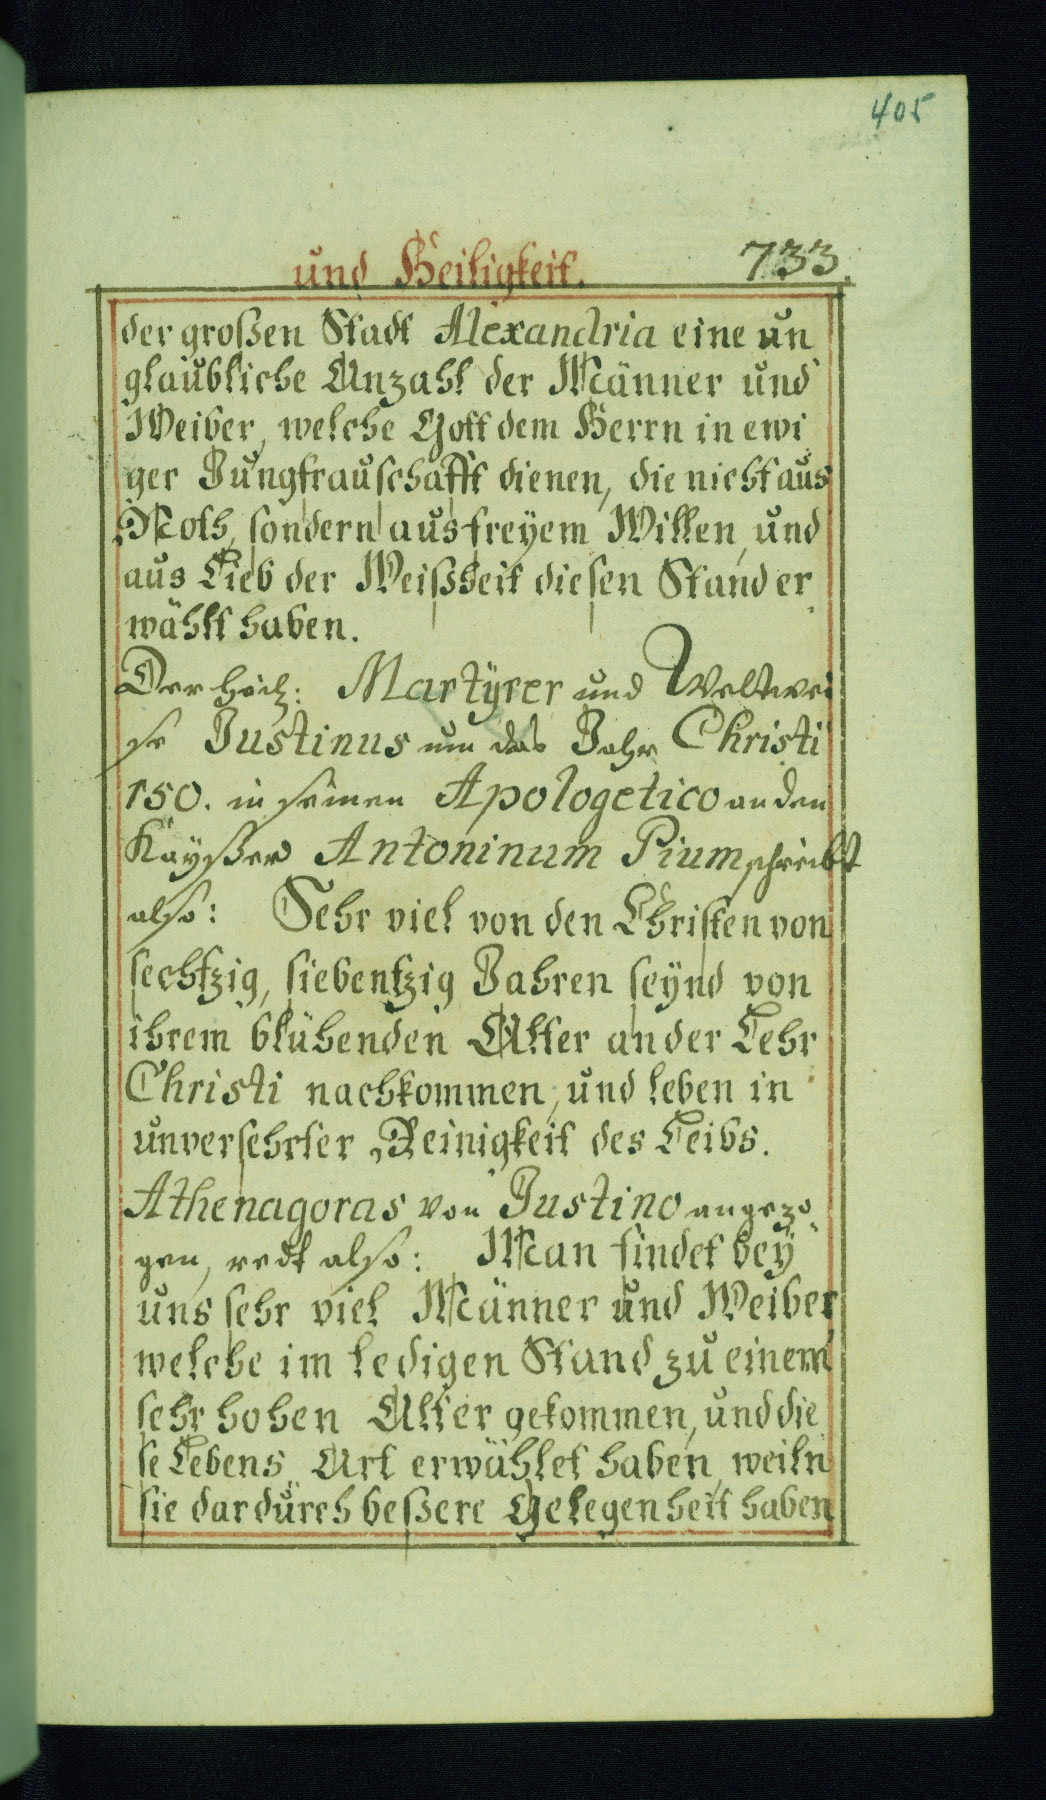 405
und Heiligkeit. 733.
der großen Stadt Alexandria eine un
glaubliche Anzahl der Männer und
Weiber, welche Gott dem Herrn in ewi
ger Jungfrauschafft dienen, die nicht aus
Noth, sondern aus freyem Willen, und
aus Lieb der Weißheit diesen Stand er
wählt haben.
Der heil: Martÿrer und Weltwei
se Justinus um das Jahr Christi
150. in seinen Apologetico an den
Kaÿßer Antoninum Pium schreibt
also: Sehr viel von den Christen von
sechtzig, siebentzig Jahren seÿnd von
ihrem blühenden Alter an der Lehr
Christi nachkommen, und leben in
unversehrter Reinigkeit des Leibs.
Athenagoras von Justino angezo
gen, redt also: Man findet beÿ
uns sehr viel Männer und Weiber
welche im ledigen Stand zu einem
sehr hohen Alter gekommen, und die
se Lebens Art erwählet haben, weiln
sie dardurch beßere Gelegenheit haben